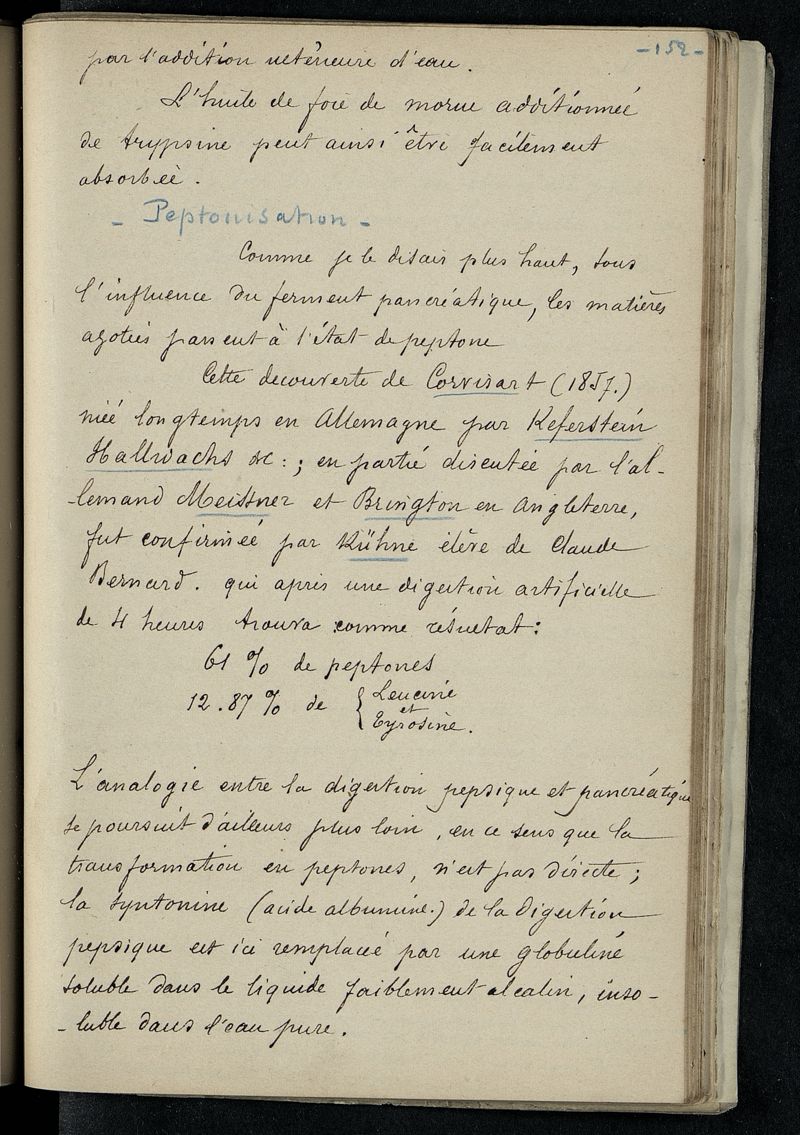 -152-
par l'addition ultérieure d'eau.
L'huile de foie de morue additionnée
de trypsine peut ainsi être facilement
absorbée.
- Peptonisation -
Comme je le disais plus haut, sous
l'influence du ferment pancréatique, les matières
azotées passent à l'état de peptone
Cette decouverte de Corvisart (1857.)
niée longtemps en Allemagne par Keferstein
Hallwachs &c : ; en partie discutée par l'al-
-lemand Meissner et Brington en Angleterre,
fut confirmée par Kühne élève de Claude
Bernard. qui après une digestion artificielle
de 4 heures trouva comme résultat :
61 % de peptones
12.87 % de { Leucine
et
Tyrosine.
L'analogie entre la digestion pepsique et pancréatique
se poursuit d'ailleurs plus loin, en ce sens que la
transformation en peptones, n'est pas directe ;
la syntonine (acide albumine.) de la digestion
pepsique est ici remplacée par une globuline
soluble dans le liquide faiblement alcalin, inso-
-luble dans l'eau pure.